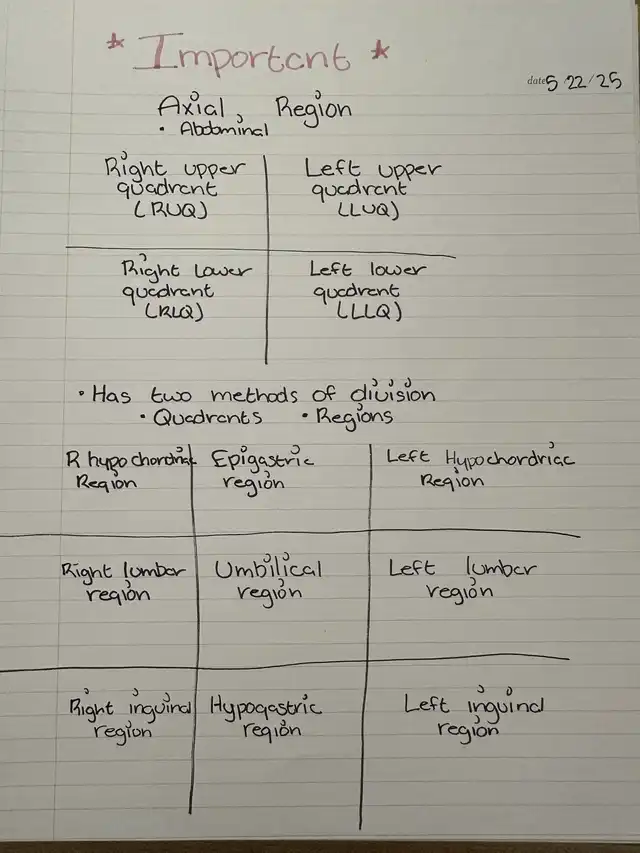 * Important *
date 5/22/25
Axial Region
• Abdominal
Right upper quadrant (RUQ)
Left upper quadrant (LUQ)
Right lower quadrant (RLQ)
Left lower quadrant (LLQ)
• Has two methods of division
• Quadrants • Regions
R hypochordriac Region
Epigastric region
Left Hypochordriac Region
Right lumbar region
Umbilical region
Left lumbar region
Right inguinal region
Hypogastric region
Left inguinal region